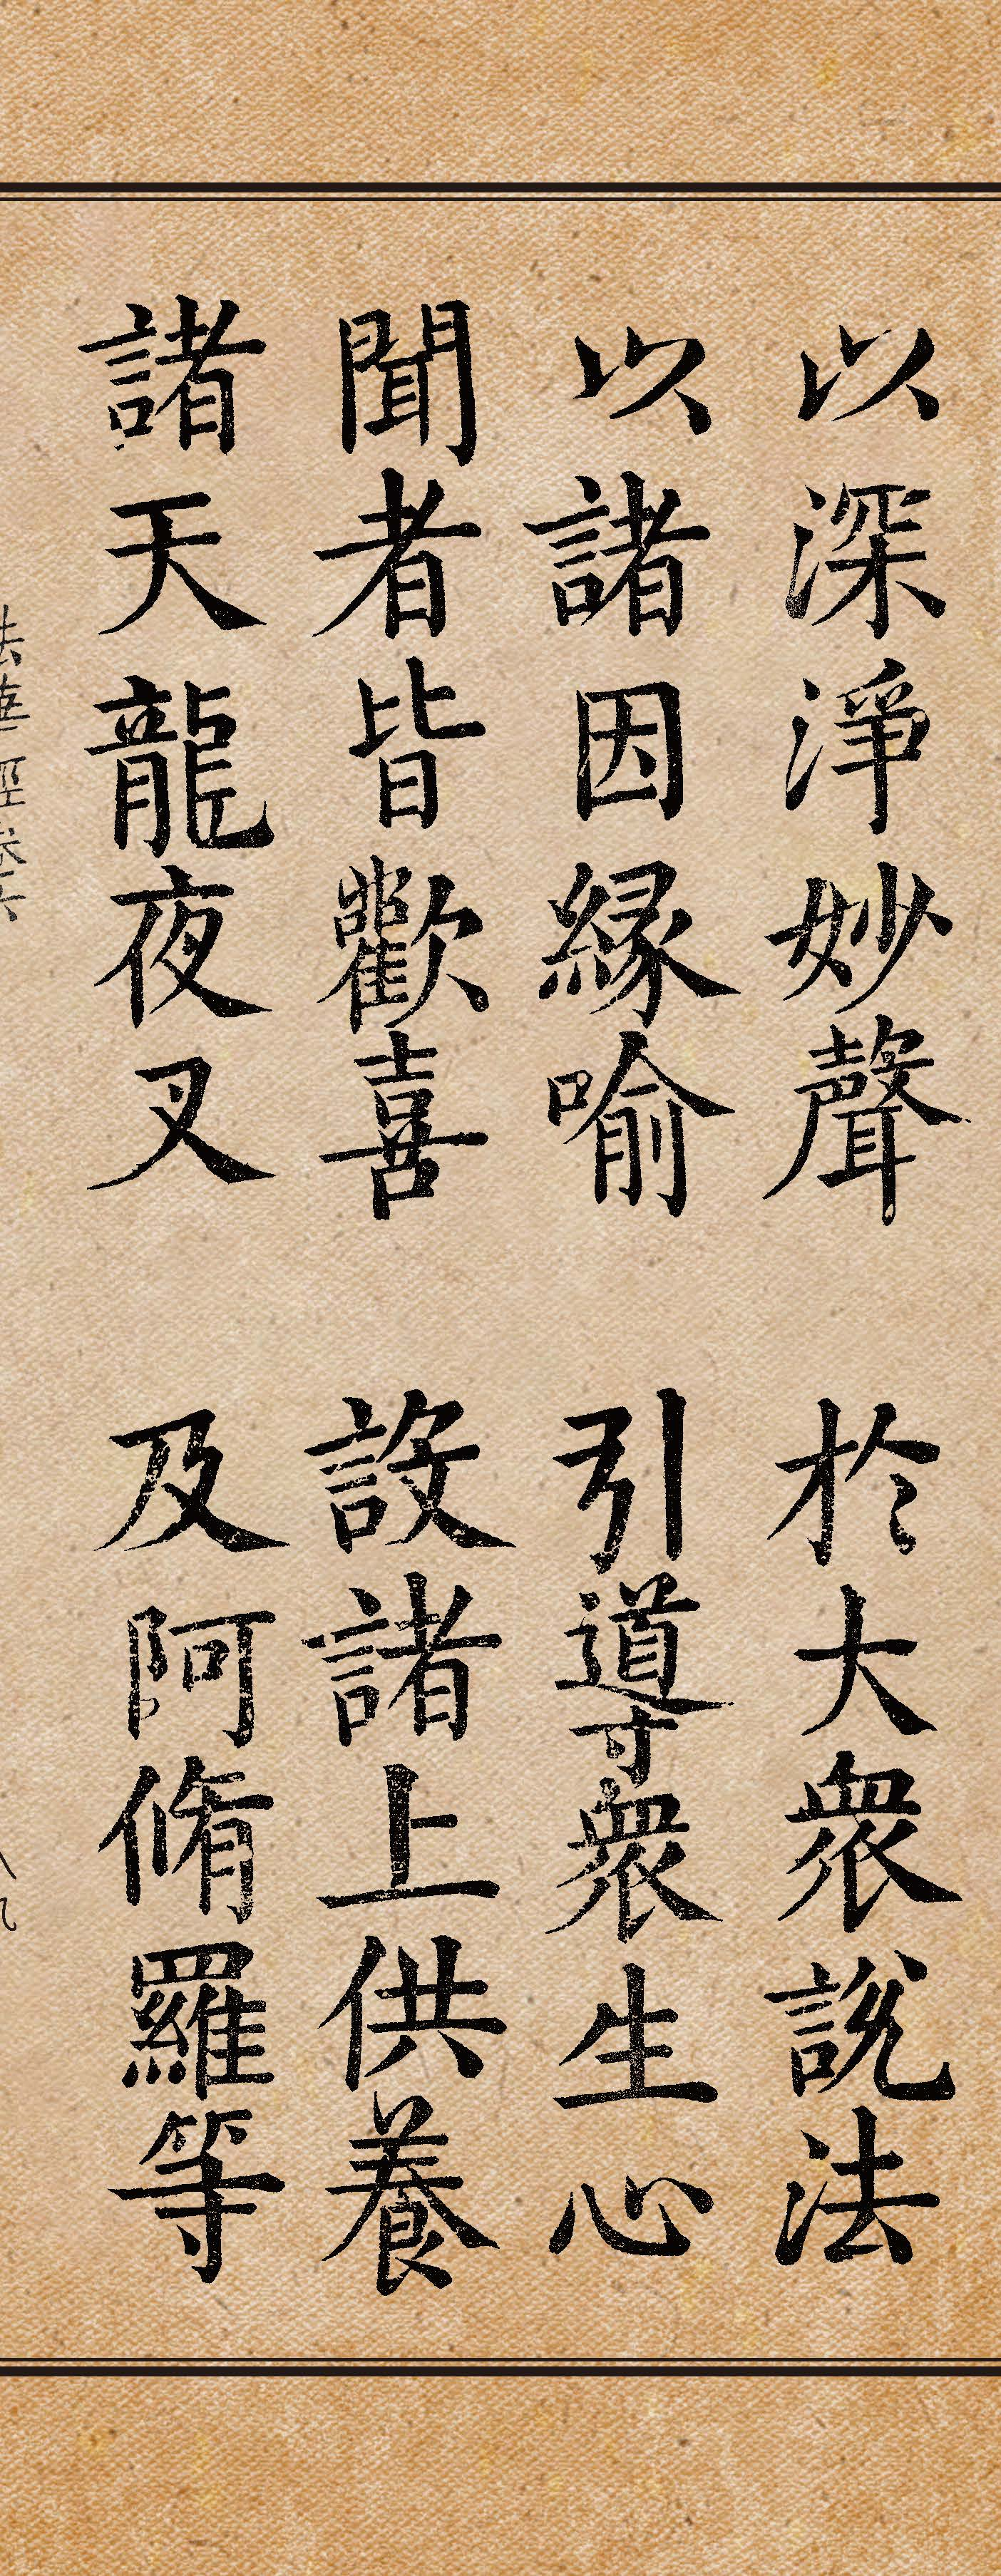 以深淨妙聲　於大衆說法
以諸因緣喻　引導衆生心
聞者皆歡喜　設諸上供養
諸天龍夜叉　及阿脩羅等
法華經卷六